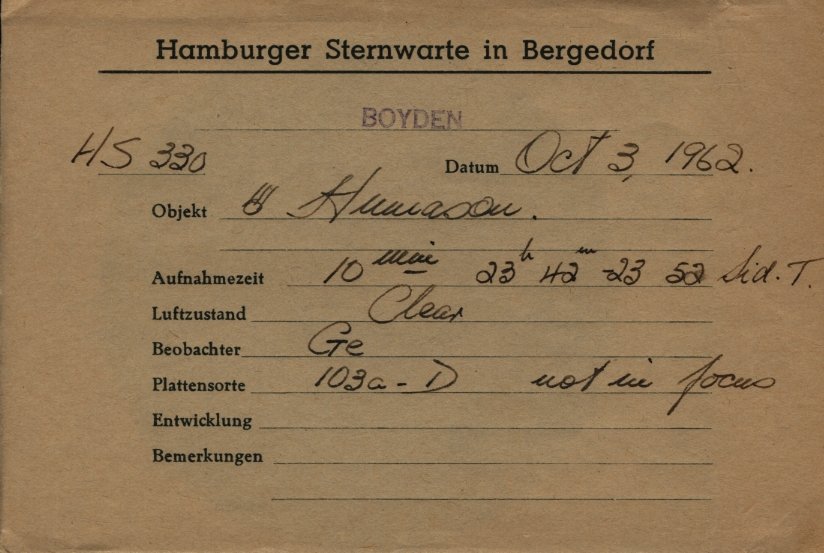 Hamburger Sternwarte in Bergedorf
BOYDEN
HS 330 Datum Oct 3, 1962.
Objekt ☄ Humason.
Aufnahmezeit 10 min 23h 42m -23 52 Sid. T.
Luftzustand Clear
Beobachter Ge
Plattensorte 103a-D not in focus
Entwicklung
Bemerkungen